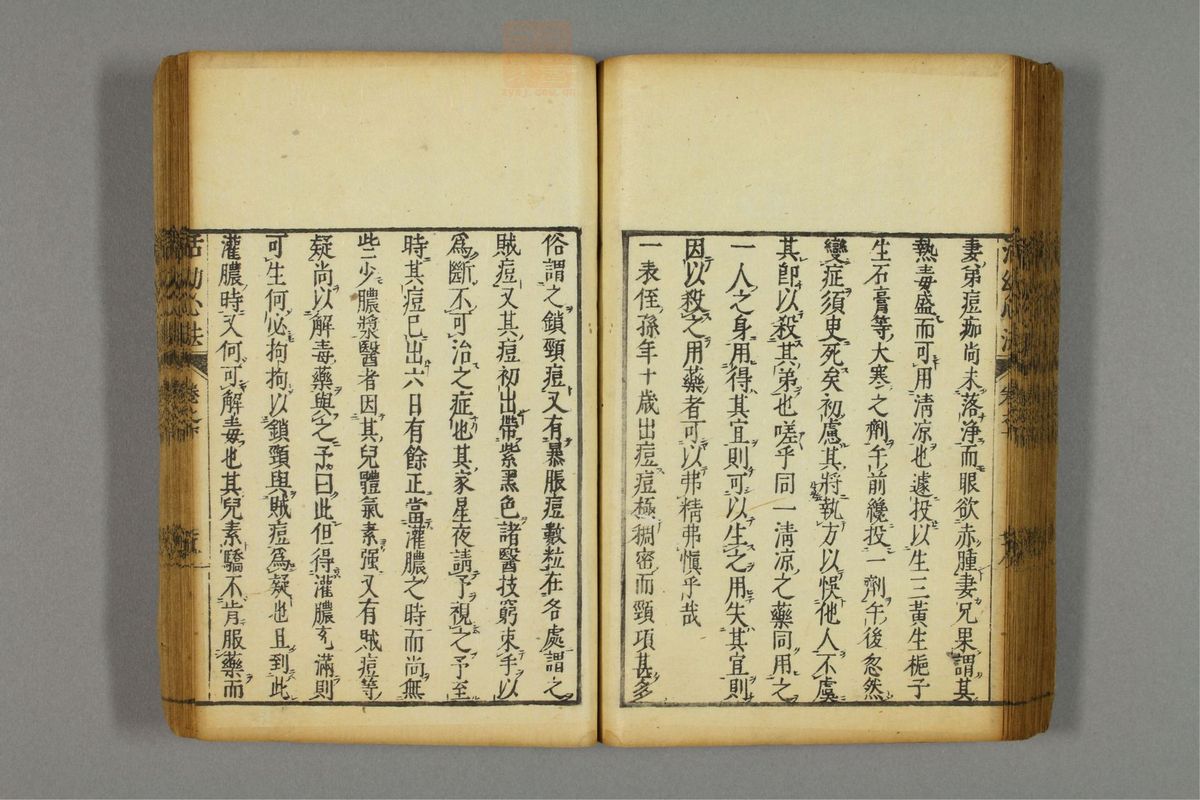 妻弟痘痂尚未落淨而眼欲赤腫妻兄果謂其
熱毒盛而可用清凉也遽投以生三黃生梔子
生石膏等大寒之劑午前纔投一劑午後忽然
變症須臾死矣初慮其將執方以悞他人不虞
其卽以殺其弟也嗟乎同一清凉之藥同用之
一人之身用得其宜則可以生之用失其宜則
因以殺之用藥者可以弗精弗愼乎哉
一表侄孫年十歲出痘痘極稠密而頸項甚多
俗謂之鎖頸痘又有暴脹痘數粒在各處謂之
賊痘又其痘初出帶紫黑色諸醫技窮束手以
爲斷不可治之症也其家星夜請予視之予至
時其痘已出六日有餘正當灌膿之時而尚無
些少膿漿醫者因其兒體氣素强又有賊痘等
疑尚以解毒藥與之予曰此但得灌膿充滿則
可生何必拘拘以鎖頸與賊痘爲疑也且到此
灌膿時又何可解毒也其兒素驕不肯服藥而
活幼心法
卷之